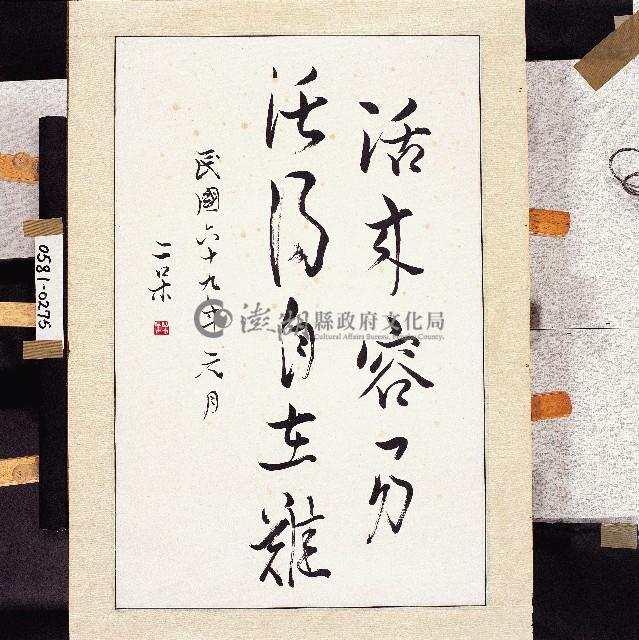 活來容易
活得自在難
民國六十九年元月
二呆
0581-0275
澎湖縣政府文化局
Cultural Affairs Bureau, Penghu County.